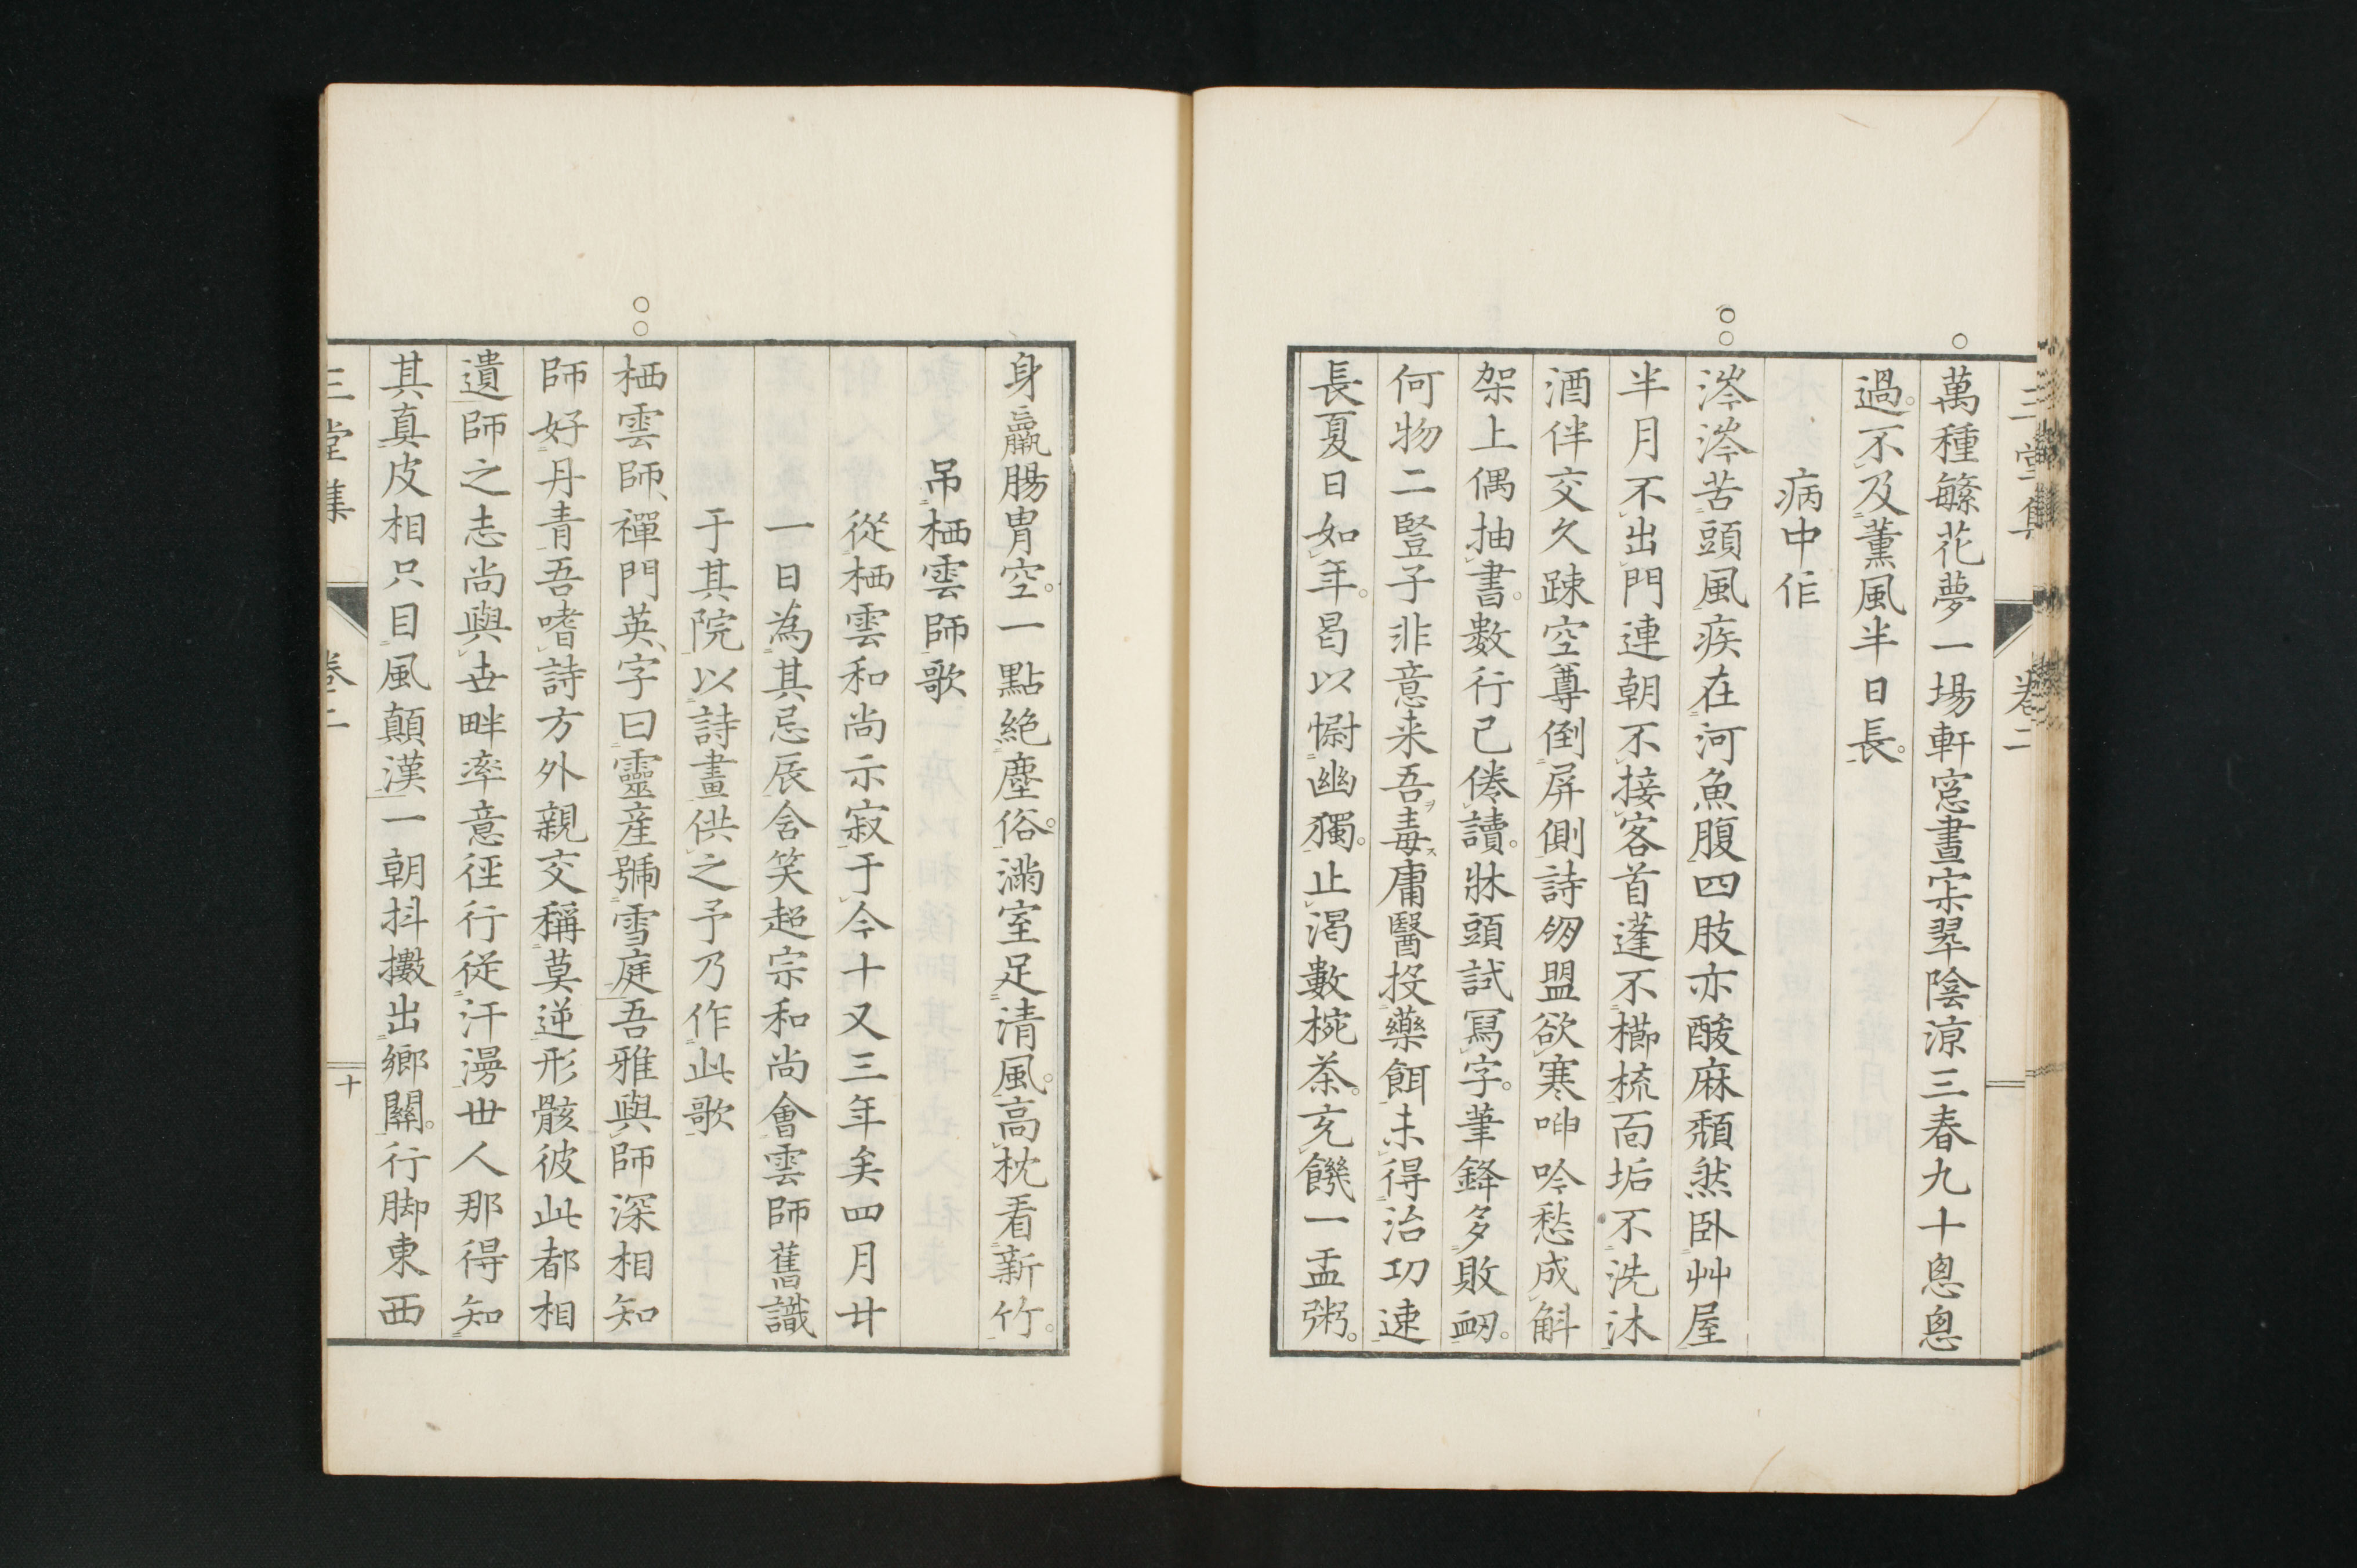 三堂集　卷二
萬種緐花夢一場軒窓晝寂翠陰涼三春九十悤悤
過。不及薰風半日長。
病中作
涔涔苦頭風疾在河魚腹四肢亦酸麻頹然臥艸屋
半月不出門連朝不接客首蓬不櫛梳面垢不洗沐
酒伴交久踈空尊倒屏側詩朋盟欲寒呻吟愁成斛
架上偶抽書。數行已倦讀。牀頭試冩字。筆鋒多敗衂。
何物二豎子非意来吾ヲ毒ス庸醫投藥餌未得治功速
長夏日如年。曷以慰幽獨。止渴數椀茶。充饑一盂粥。
身羸腸胃空。一點絶塵俗。滿室足清風。高枕看新竹。
吊栖雲師歌
從栖雲和尚示寂于今十又三年矣四月廿
一日為其忌辰含笑超宗和尚會雲師舊識
于其院以詩畫供之予乃作此歌
栖雲師、禪門英、字曰靈産號雪庭吾雅與師深相知
師好丹青吾嗜詩方外親交稱莫逆形骸彼此都相
遺師之志尚與世畔率意徑行從汗漫世人那得知
其真皮相只目風顛漢一朝抖擻出鄉關。行脚東西
三堂集　卷二　十